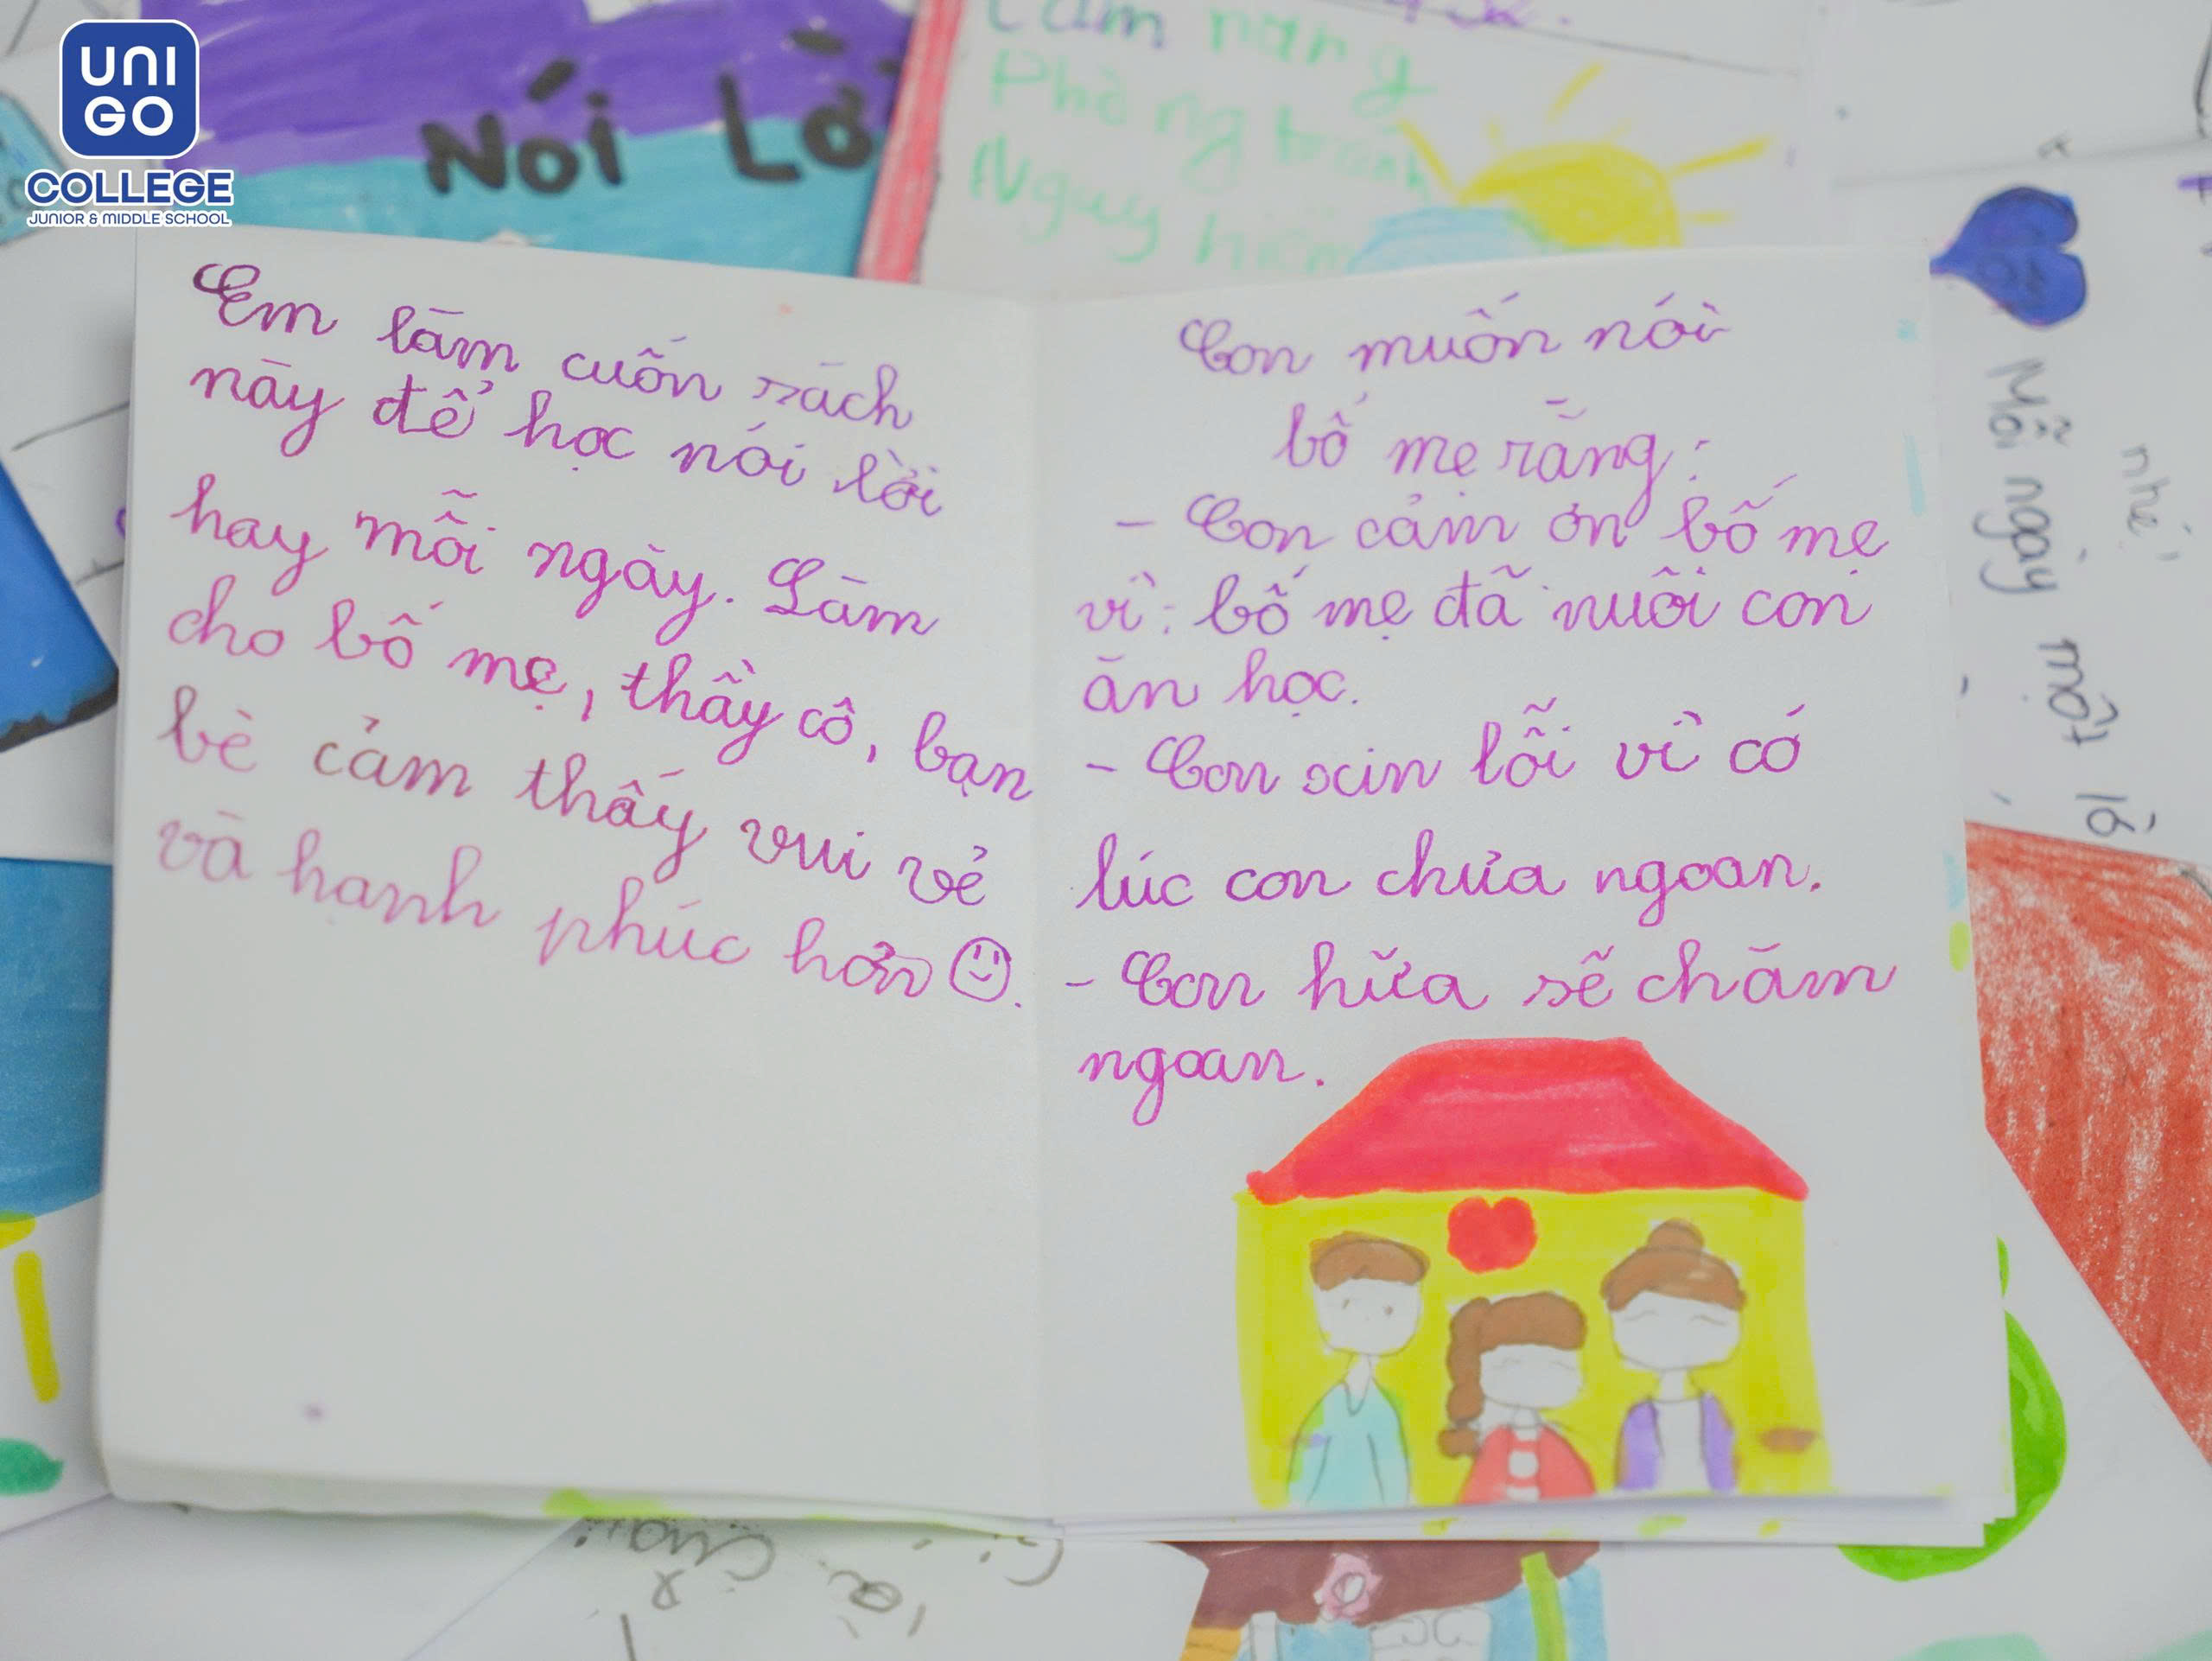 UNI
GO
COLLEGE
JUNIOR & MIDDLE SCHOOL
NÓI LỜ
Cẩm nang
Phòng tránh
Nguy hiểm
Em làm cuốn sách
này để học nói lời
hay mỗi ngày. Làm
cho bố mẹ, thầy cô, bạn
bè cảm thấy vui vẻ
và hạnh phúc hơn
Con muốn nói
bố mẹ rằng:
- Con cảm ơn bố mẹ
vì: bố mẹ đã nuôi con
ăn học.
- Con xin lỗi vì có
lúc con chưa ngoan.
- Con hứa sẽ chăm
ngoan.
Mỗi ngày một lời
nhé!